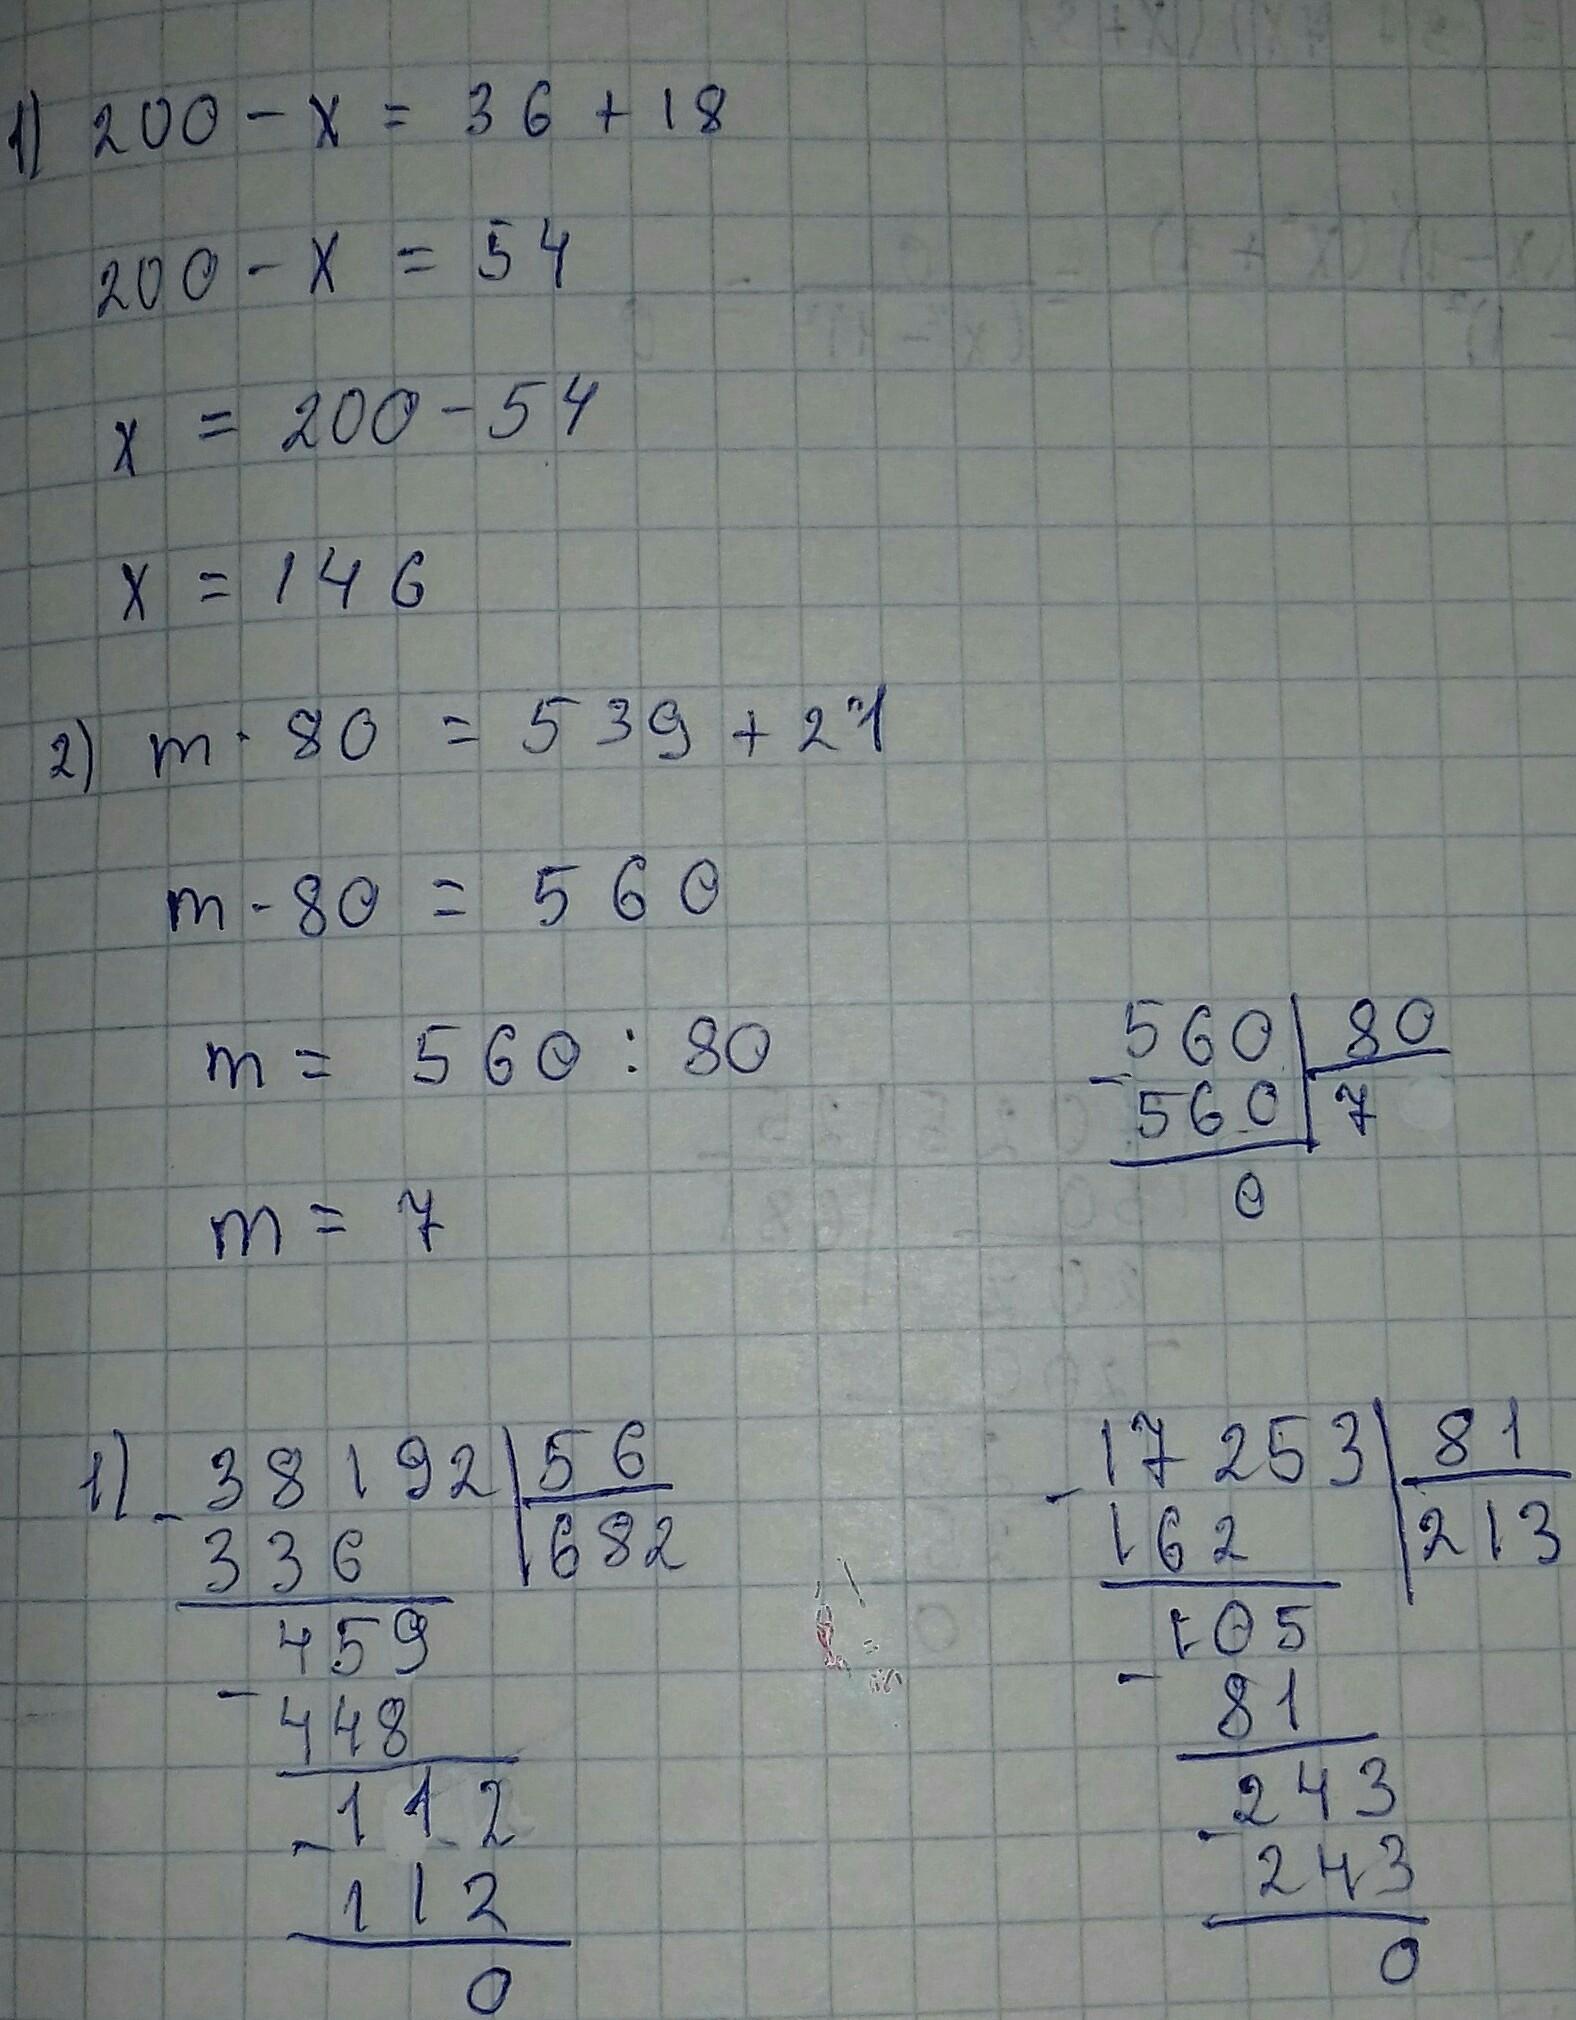 1) 200 - x = 36 + 18
200 - x = 54
x = 200 - 54
x = 146
2) m · 80 = 539 + 21
m · 80 = 560
m = 560 : 80
m = 7
560 | 80
- 560 | 7
0
1) - 38192 | 56
336 | 682
459
- 448
112
- 112
0
- 17253 | 81
162 | 213
105
- 81
243
- 243
0